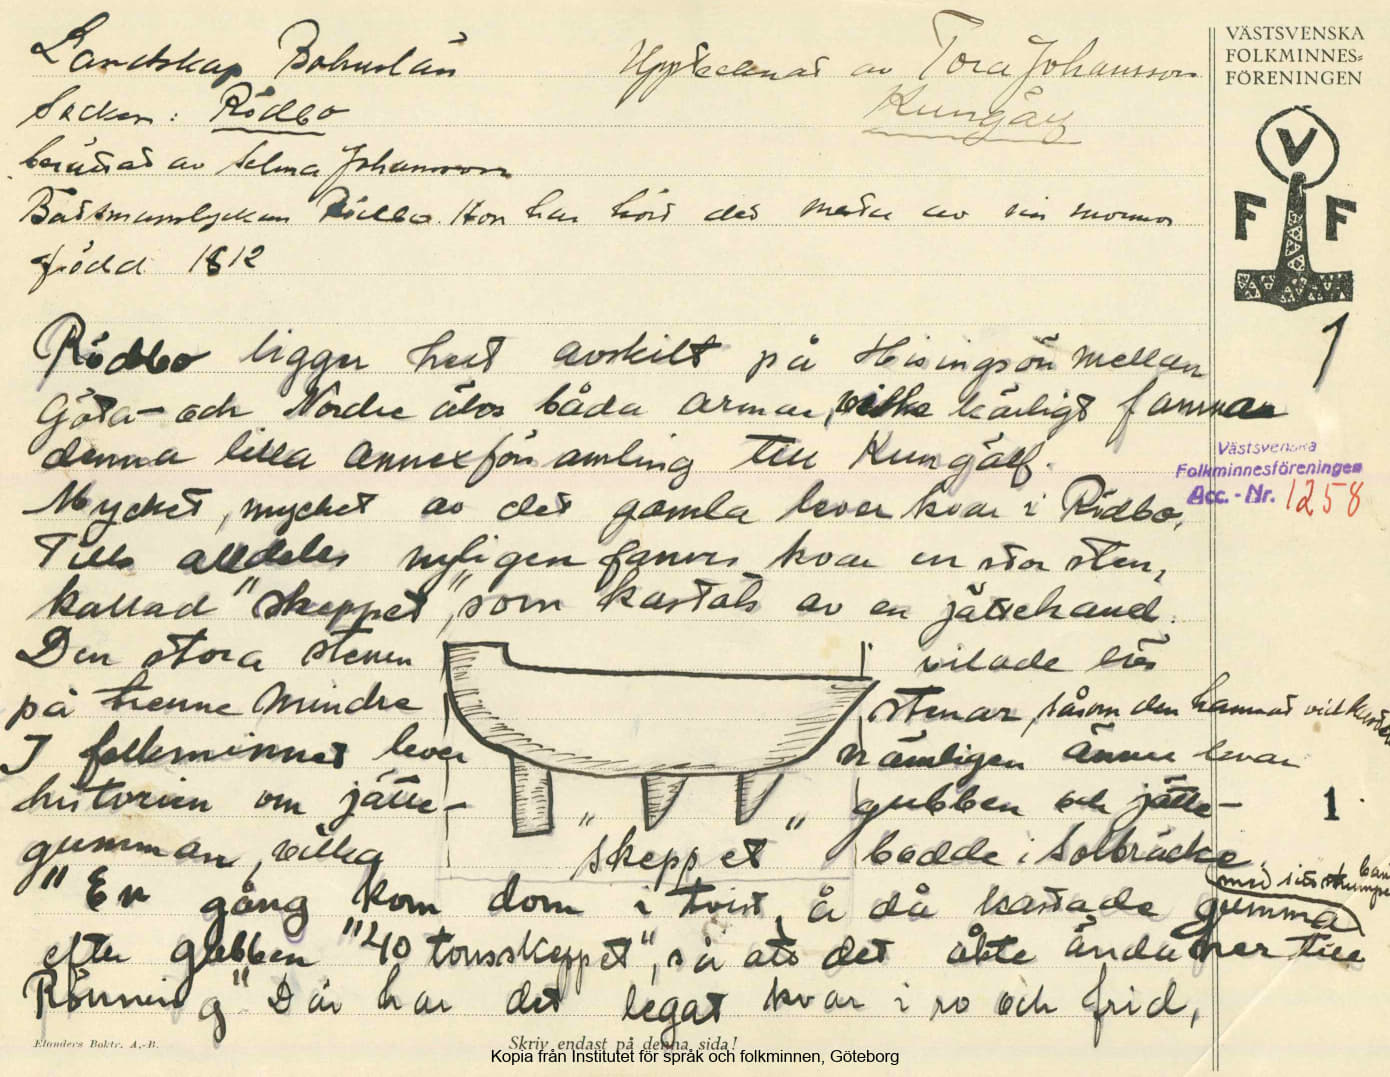 Landskap Bohuslän
Upptecknat av Tora Johansson
Socken: Rödbo
Kungälv
berättat av Selma Johansson
Båtsmanslyckan Rödbo. Hon har hört det mesta av sin mormor
född 1812
VÄSTSVENSKA
FOLKMINNES=
FÖRENINGEN
V
F F
1
Rödbo ligger helt avskilt på Hisingsön mellan
Göta- och Nordre älvs båda armar, vilka kärligt famnar
denna lilla annexförsamling till Kungälf.
Mycket, mycket av det gamla lever kvar i Rödbo.
Tills alldeles nyligen fanns kvar en stor sten,
kallad "skeppet", som kastats av en jättehand.
Västsvenska
Folkminnesföreningen
Acc.-Nr. 1258
Den stora stenen vilade löst
på trenne mindre stenar, såsom den hamnat vid
I folkminnet lever nämligen ännu kvar
historien om jätte- gubben och jätte-
gumman, vilka "skeppet" bodde i Solbräcke.
1.
"En gång kom dom i tvist, å då kastade gumma
med sitt
efter gubben "40 tonsskeppet", så att det åkte ända ner till
Rönning" Där har det legat kvar i ro och frid,
Elanders Boktr. A.-B.
Skriv endast på denna sida!
Kopia från Institutet för språk och folkminnen, Göteborg